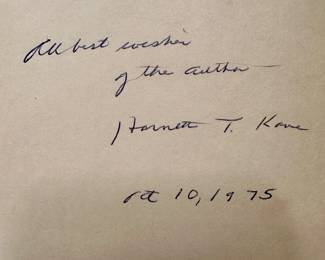 All best wishes
of the author
Harnett T. Kane
Oct 10, 1975